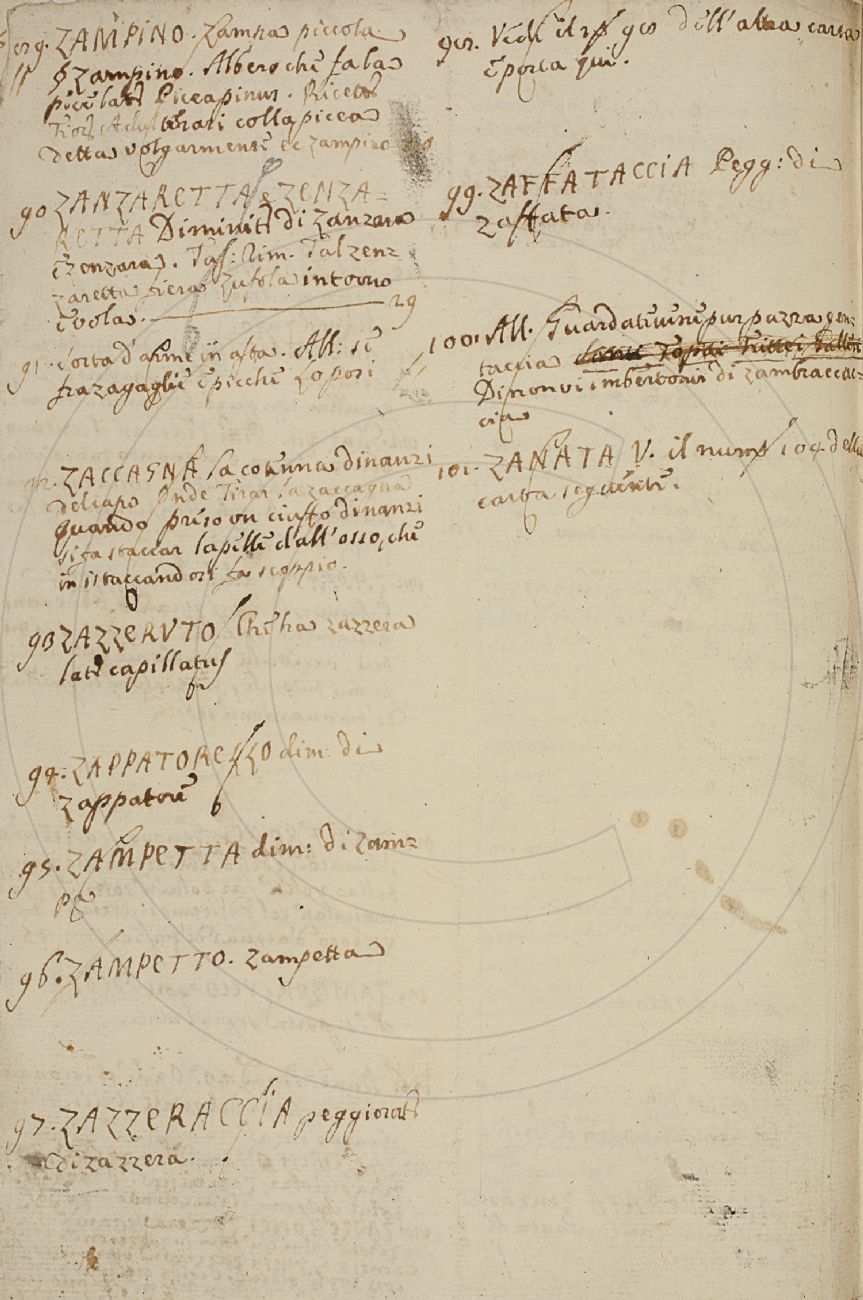 89. ZAMPINO. Zampa piccola
§ Zampino. Albero che fa la
pece lat. Piceapinus. Ricett.
Fior. thiari colla picea
detta volgarmente zampino
90 ZANZARETTA, e ZENZA-
RETTA Diminit. di Zanzara
e zenzara. Tas: Rim. Tal zenz
zaretta fiera Zufola intorno
e vola. 29
91. Sorta d'arme in asta. All: se
frazagaglie e picche Lo posi
92. ZACCAGNA La cotenna dinanzi
del capo Onde Tirar la zaccagna
quando preso un ciuffo dinanzi
si fa staccar la pelle dall'osso, che
in istaccandosi fa scoppio.
93 ZAZZERUTO Che ha zazzera
lat. capillatus
94. ZAPPATORELLO dim: di
zappatore
95. ZAMPETTA dim: di zam=
pa
96. ZAMPETTO. zampetta
97. ZAZZERACCIA peggiorat.
di zazzera.
98. Vedi il 98 dell'altra carta
e porta qui.
99. ZAFFATACCIA Pegg: di
zaffata.
100. All. Guardatevene pur pazza gen=
taccia
Di non vi imbertonir di zambraccac=
cia
101. ZANATA V. il num. 104. della
carta seguente.